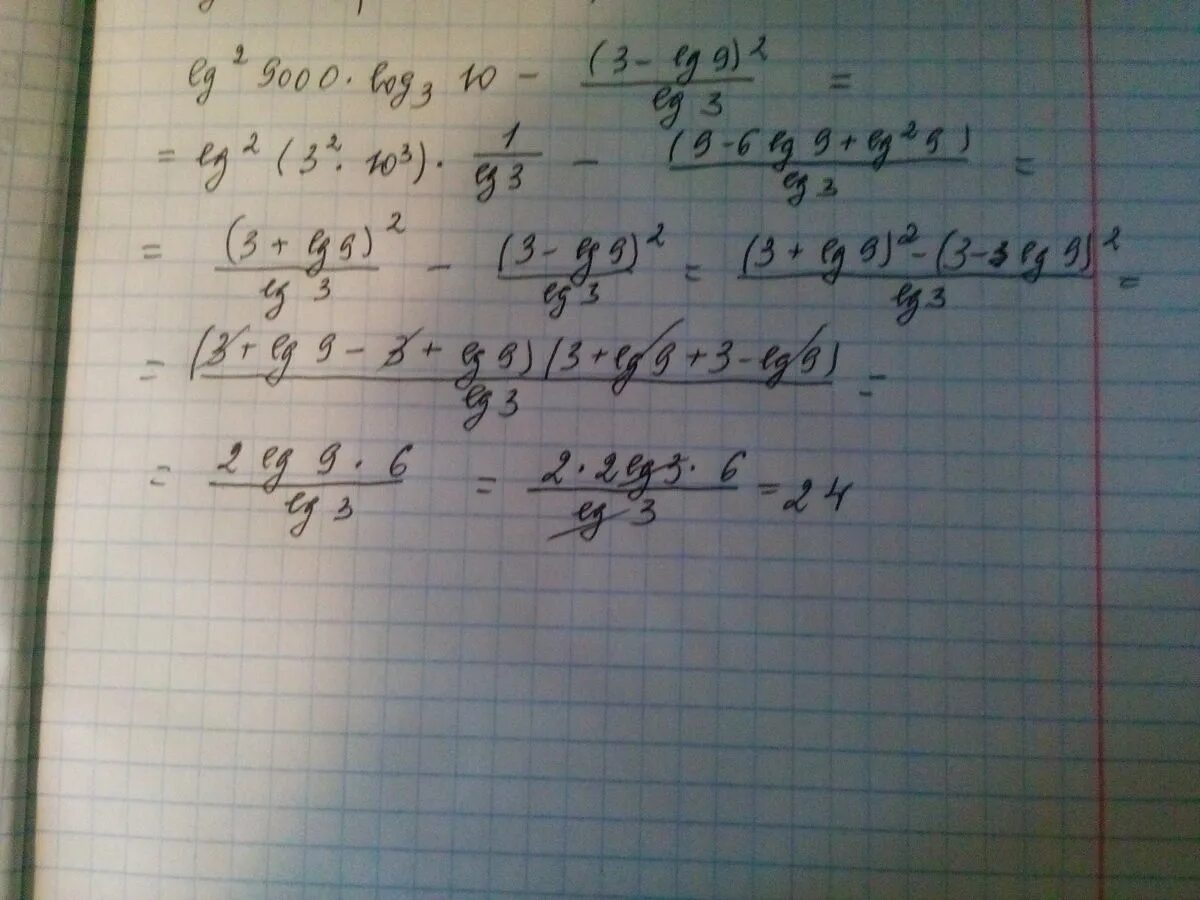 lg² 9000 · log₃ 10 − (3 − lg 9)² / lg 3 =
= lg² (3² · 10³) · 1 / lg 3 − (9 − 6 lg 9 + lg² 9) / lg 3 =
= (3 + lg 9)² / lg 3 − (3 − lg 9)² / lg 3 = (3 + lg 9)² − (3 − lg 9)² / lg 3 =
= (3 + lg 9 − 3 + lg 9) (3 + lg 9 + 3 − lg 9) / lg 3 =
= 2 lg 9 · 6 / lg 3 = 2 · 2 lg 3 · 6 / lg 3 = 24